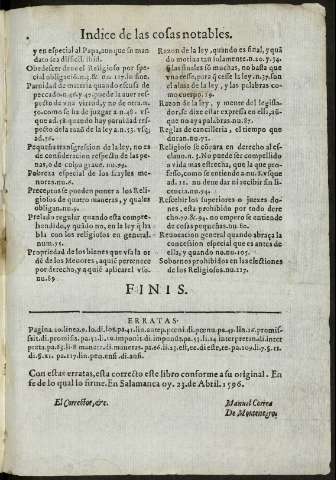 Indice de las cosas notables.
y en especial al Papa, aunque su man
dato sea difficil. ibid.
Obedescer deue el Religioso por spe-
cial obligatiō.n.4.& nu.117.in fine.
Paruidad de materia quando escusa de
peccado.n.46.y 47. puede la auer res-
pecto de vna virtud, y no de otra.n.
50. como se ha de juzgar a n.48. vs-
que ad.58. quando hay paruidad res-
pecto dela razō de la ley a n.53. vsq;
ad.56.
Pequeña transgression de la ley, no es
de consideracion respecto de las pe-
nas, o de culpa graue. nu.94.
Pobreza especial de los frayles me-
nores. nu.6.
Preceptos se pueden poner a los Reli-
giosos de quatro maneras, y quales
obligan. nu.9.
Prelado regular quando esta compre-
hendido, y quādo no, en la ley q̄ ha
bla con los religiosos en general.
num.75.
Propriedad de los bienes que vsa la or
dē de los Menores, a quiē pertenece
por derecho, y a quiē aplicarel vso.
nu.89
Razon de la ley, quando es final, y quā
do motiua tan solamente. n.20. y 34.
y las finales sō muchas, no basta que
vna cesse, para q̄ cesse la ley. n.37. son
el alma de la ley, y las palabras co-
mo cuerpo. 79.
Razon de la ley, y mente del legisla-
dor, se dize estar expressa en ella, aū-
que no ay palabras. nu.87.
Reglas de cancilleria, el tiempo que
duran. nu.77.
Religioso se cōpara en derecho al es-
clauo. n.3. No puede ser compellido
a vida mas estrecha, que la que pro-
fesso, como se entiende a nu.8. vsque
ad.12. no deue dar ni recibir sin li-
cencia. nu.94.
Rescebir los superiores o juezes do-
nes, esta prohibido por todo dere
cho. 92.& 94. no empero se entiende
de cosas pequeñas. nu.80.
Reuocacion general quando abraça la
concession especial que es antes de
ella, y quando no. nu.105.
Sobornos prohibidos en las electiones
de los Religiosos. nu.127.
FINIS.
ERRATAS.
Con estas erratas, esta correcto este libro conforme a su original. En
fe de lo qual lo firme. En Salamanca oy. 23. de Abril. 1596.
El Corrector, &c.
Manuel Correa
De Montenegro.